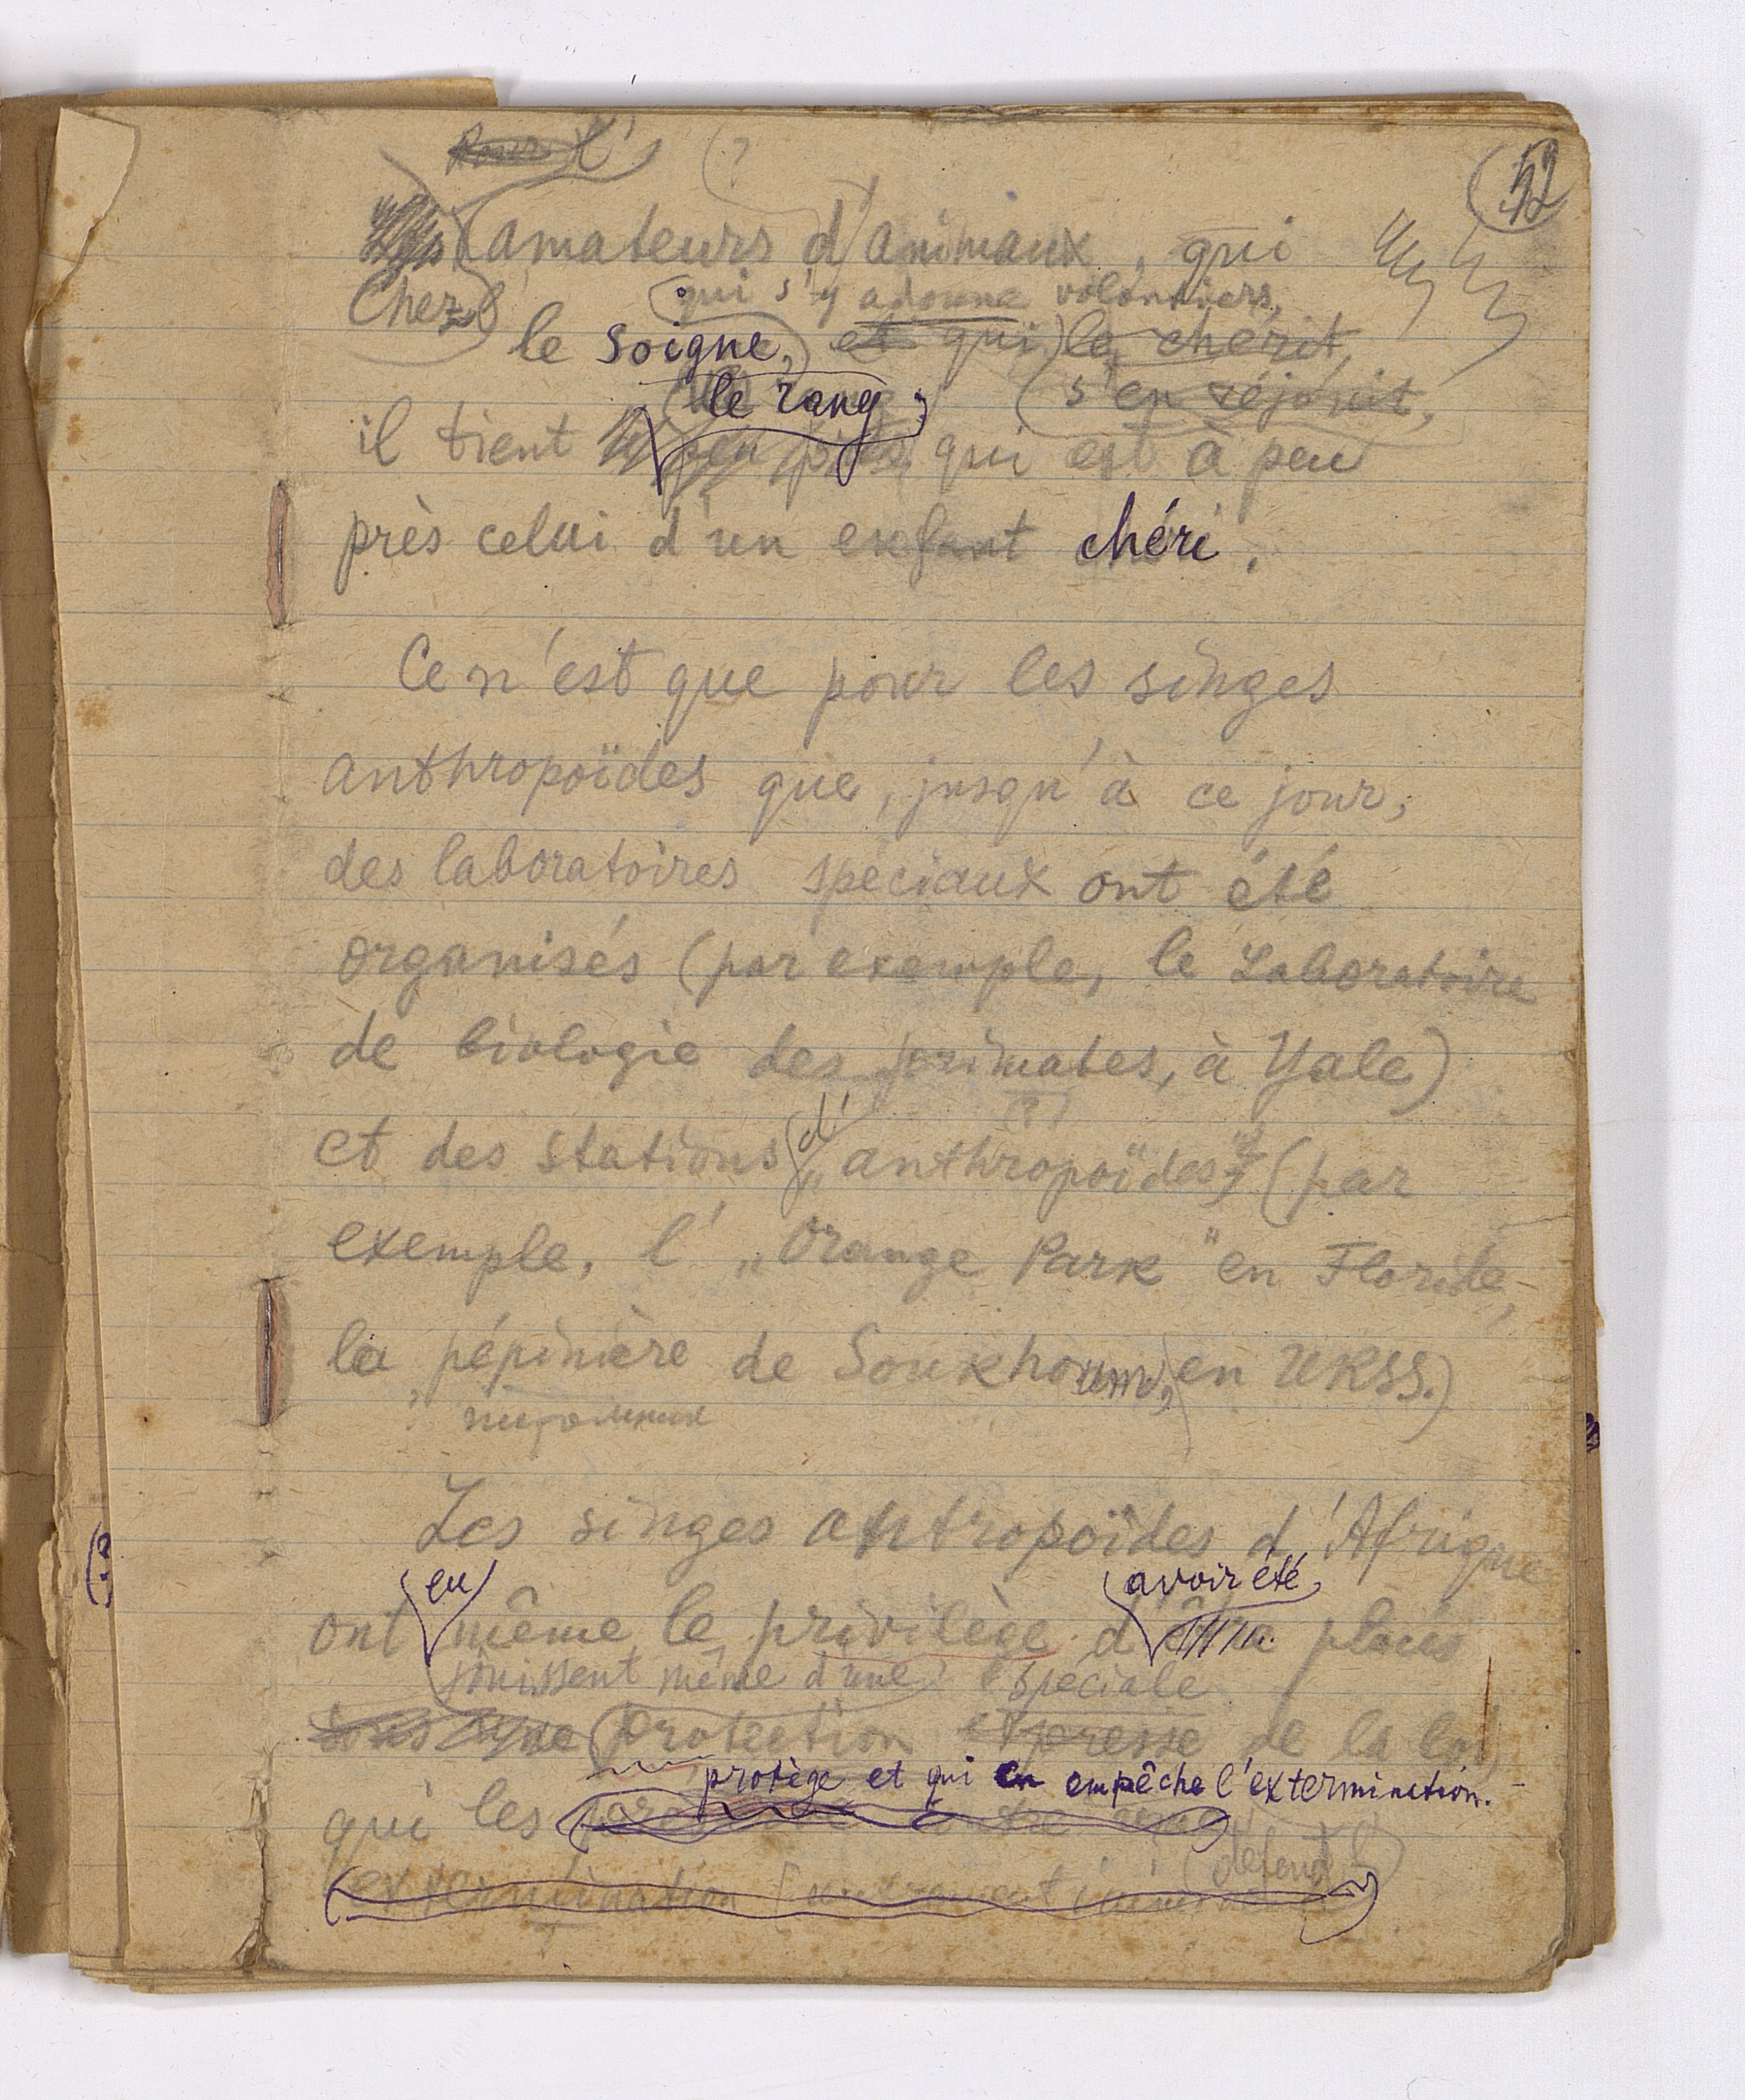 Pour l'
(?
52
amateurs d'animaux, qui
Chez l'
(qui s'y adonne volontiers,
le soigne, et qui le chérit,
le rang
(s'en réjouit,
il tient qui est à peu
près celui d'un enfant chéri.
Ce n'est que pour les singes
anthropoïdes que, jusqu'à ce jour,
des laboratoires spéciaux ont été
organisés (par exemple, le Laboratoire
de biologie des primates, à Yale)
(?)
d'
et des stations „anthropoïdes" (par
exemple, l' „Orange Park" en Floride,
la pépinière de Soukhoum, en URSS.)
? питомник
Les singes antropoïdes d'Afrique
eu
avoir été
ont même le privilège d'être placés
jouissent même d'une spéciale
sous une protection expresse de la loi,
protège et qui en empêche l'extermination.
qui les
(défend
extermination